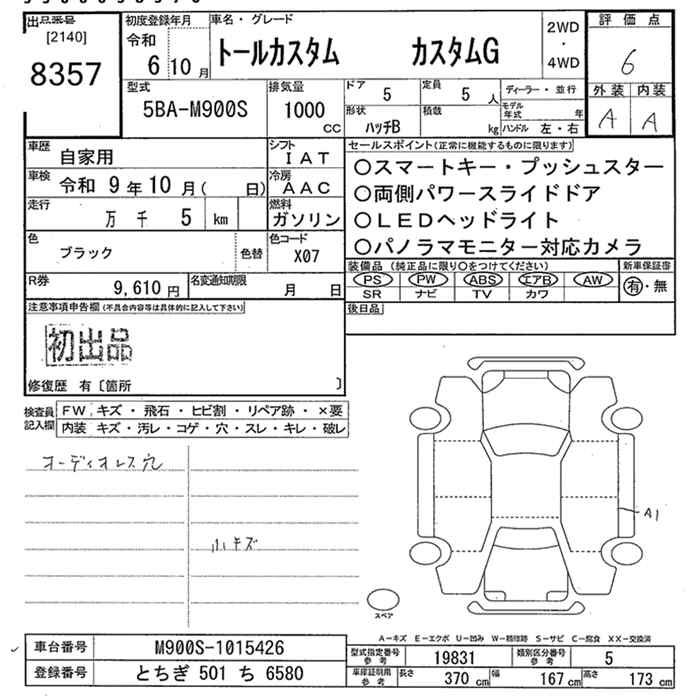 出品番号
[2140]
8357
初度登録年月
令和
6 10 月
車名・グレード
トールカスタム カスタムG
2WD
・
4WD
評価点
6
外装 内装
A A
型式
5BA-M900S
排気量
1000
CC
ドア
5
定員
5 人
形状
ハッチB
積載
kg
ディーラー・並行
モデル年式 年
ハンドル 左・右
車歴
自家用
シフト
IAT
車検
令和 9年10月( 日)
冷房
AAC
走行
万 千 5 km
燃料
ガソリン
色
ブラック
色替
色コード
X07
R券
9,610 円
名変通知期限
月 日
セールスポイント(正常に機能するものに限ります)
○スマートキー・プッシュスター
○両側パワースライドドア
○LEDヘッドライト
○パノラマモニター対応カメラ
装備品(純正品に限り○をつけてください)
PS PW ABS エアB AW
SR ナビ TV カワ
新車保証書
有・無
後日品
注意事項申告欄(不具合内容等は具体的に記入して下さい)
初出品
修復歴 有〔箇所 〕
検査員記入欄
FW キズ・飛石・ヒビ割・リペア跡・×要
内装 キズ・汚レ・コゲ・穴・スレ・キレ・破レ
オーディオレス穴
小キズ
A1
スペア
A-キズ E-エクボ U-凹み W-補修跡 S-サビ C-腐食 XX-交換済
車台番号
M900S-1015426
登録番号
とちぎ 501 ち 6580
型式指定番号
参考
19831
類別区分番号
参考
5
車庫証明用
参考
長さ 370 cm
幅 167 cm
高さ 173 cm